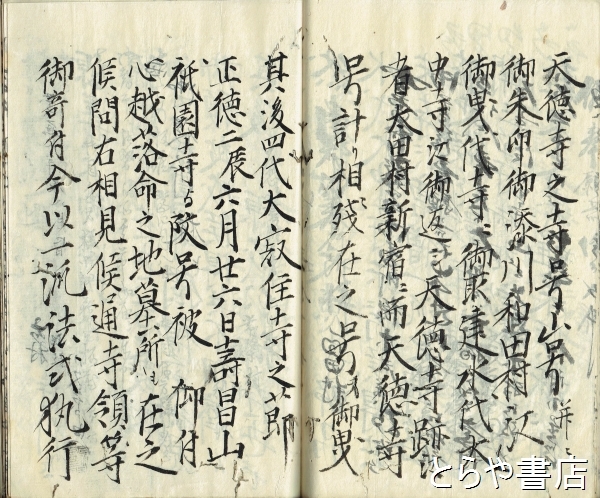 天徳寺之寺号山号并ニ
御朱印御添川和田村江
御曳代寺ニ御取達水代大
中寺江御返し天徳寺跡江
者太田村新宿ニ而天徳寺
号計り相残在之号又御曳
其後四代大寂住寺之節
正徳二辰六月廿六日壽昌山
祇園寺与改号被 仰付
心越落命之地墓所も在之
候問右相見候通寺領等
御寄付今以一派法式執行
とらや書店